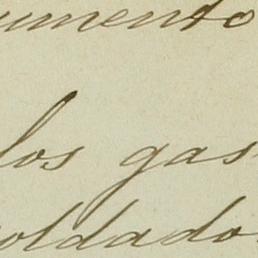 umento
los gas
oldado